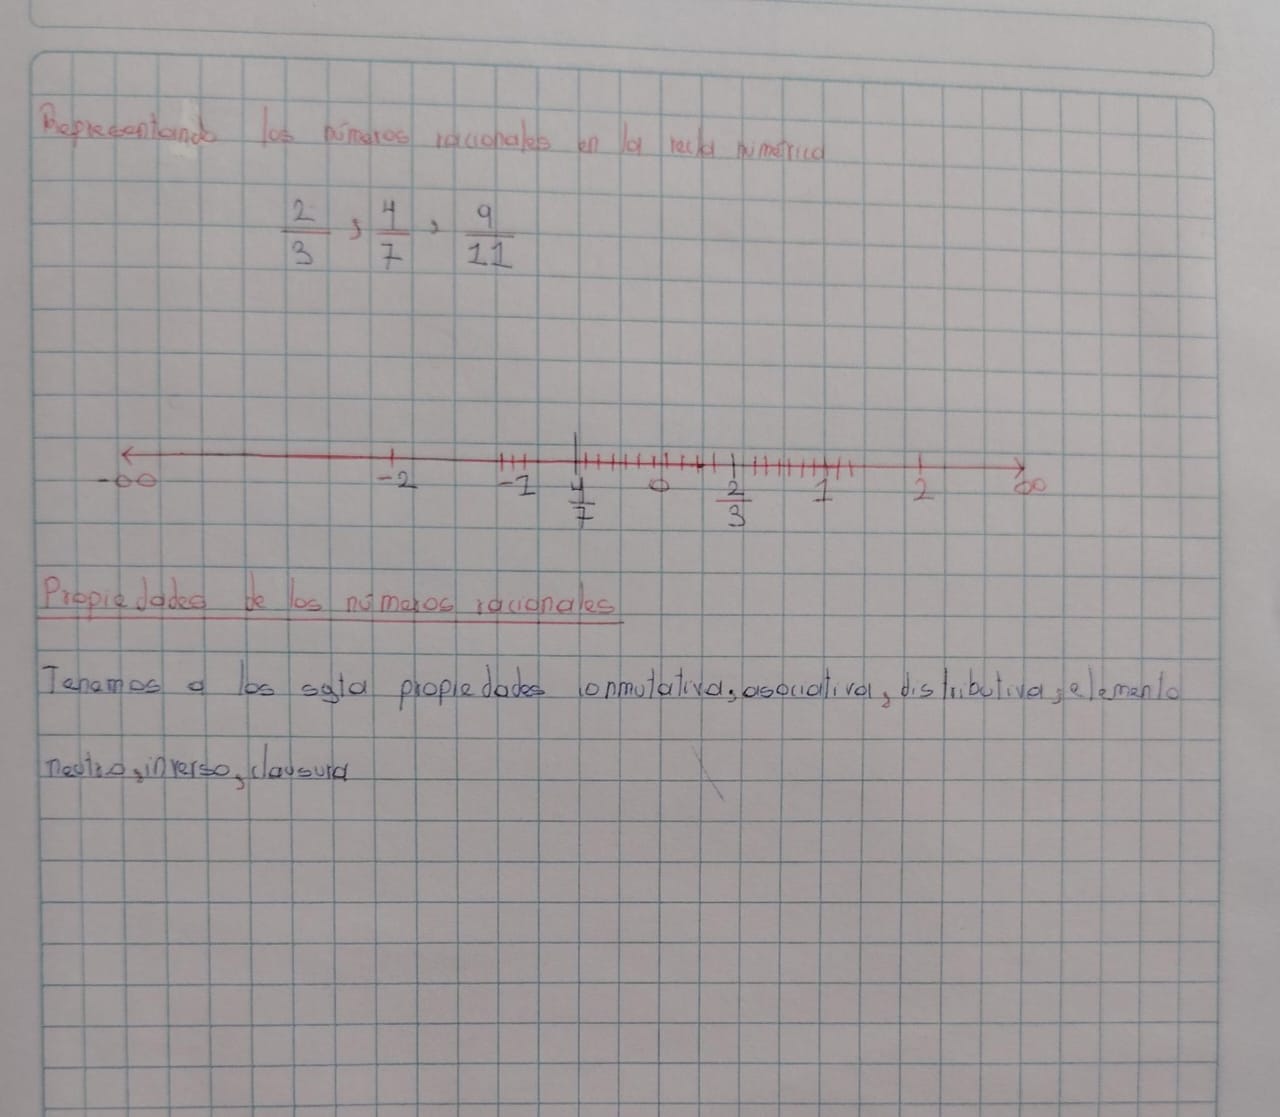 Representando los números racionales en la recta numérica
2/3 , 4/7 , 9/11
-∞ -2 -1 4/7 0 2/3 1 2 ∞
Propiedades de los números racionales
Tenemos a los sgta propiedades conmutativa, asociativa, distributiva, elemento
neutro, inverso, clausura